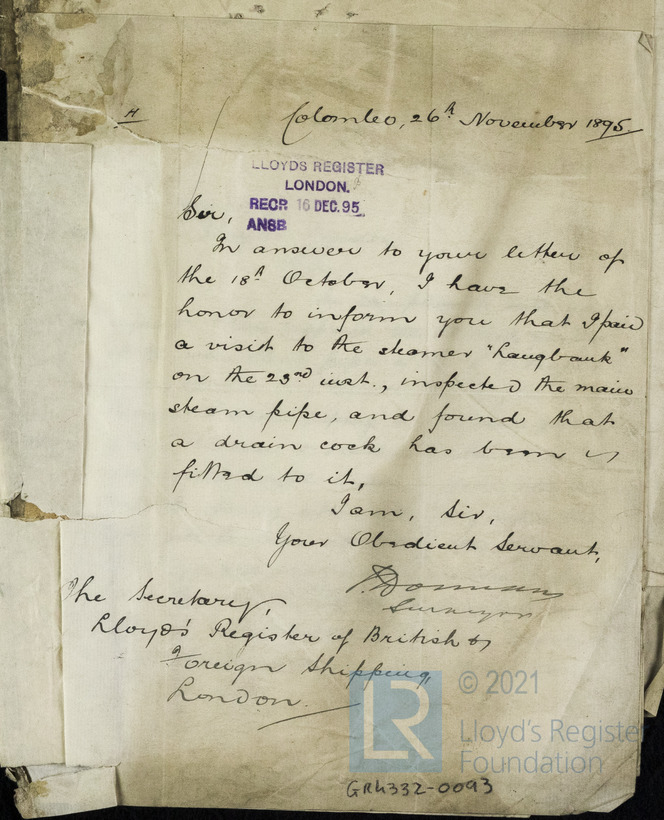 H
Colombo, 26th November 1895.
LLOYDS REGISTER
LONDON.
RECR 16 DEC.95
ANSB
Sir,
In answer to your letter of
the 18th October, I have the
honor to inform you that I paid
a visit to the steamer "Langbank"
on the 23rd inst., inspected the main
steam pipe, and found that
a drain cock has been
fitted to it,
I am, Sir,
Your Obedient Servant,
Surveyor
The Secretary,
Lloyd's Register of British &
Foreign Shipping,
London.
LR
© 2021
Lloyd's Register
Foundation
GRK332-0093